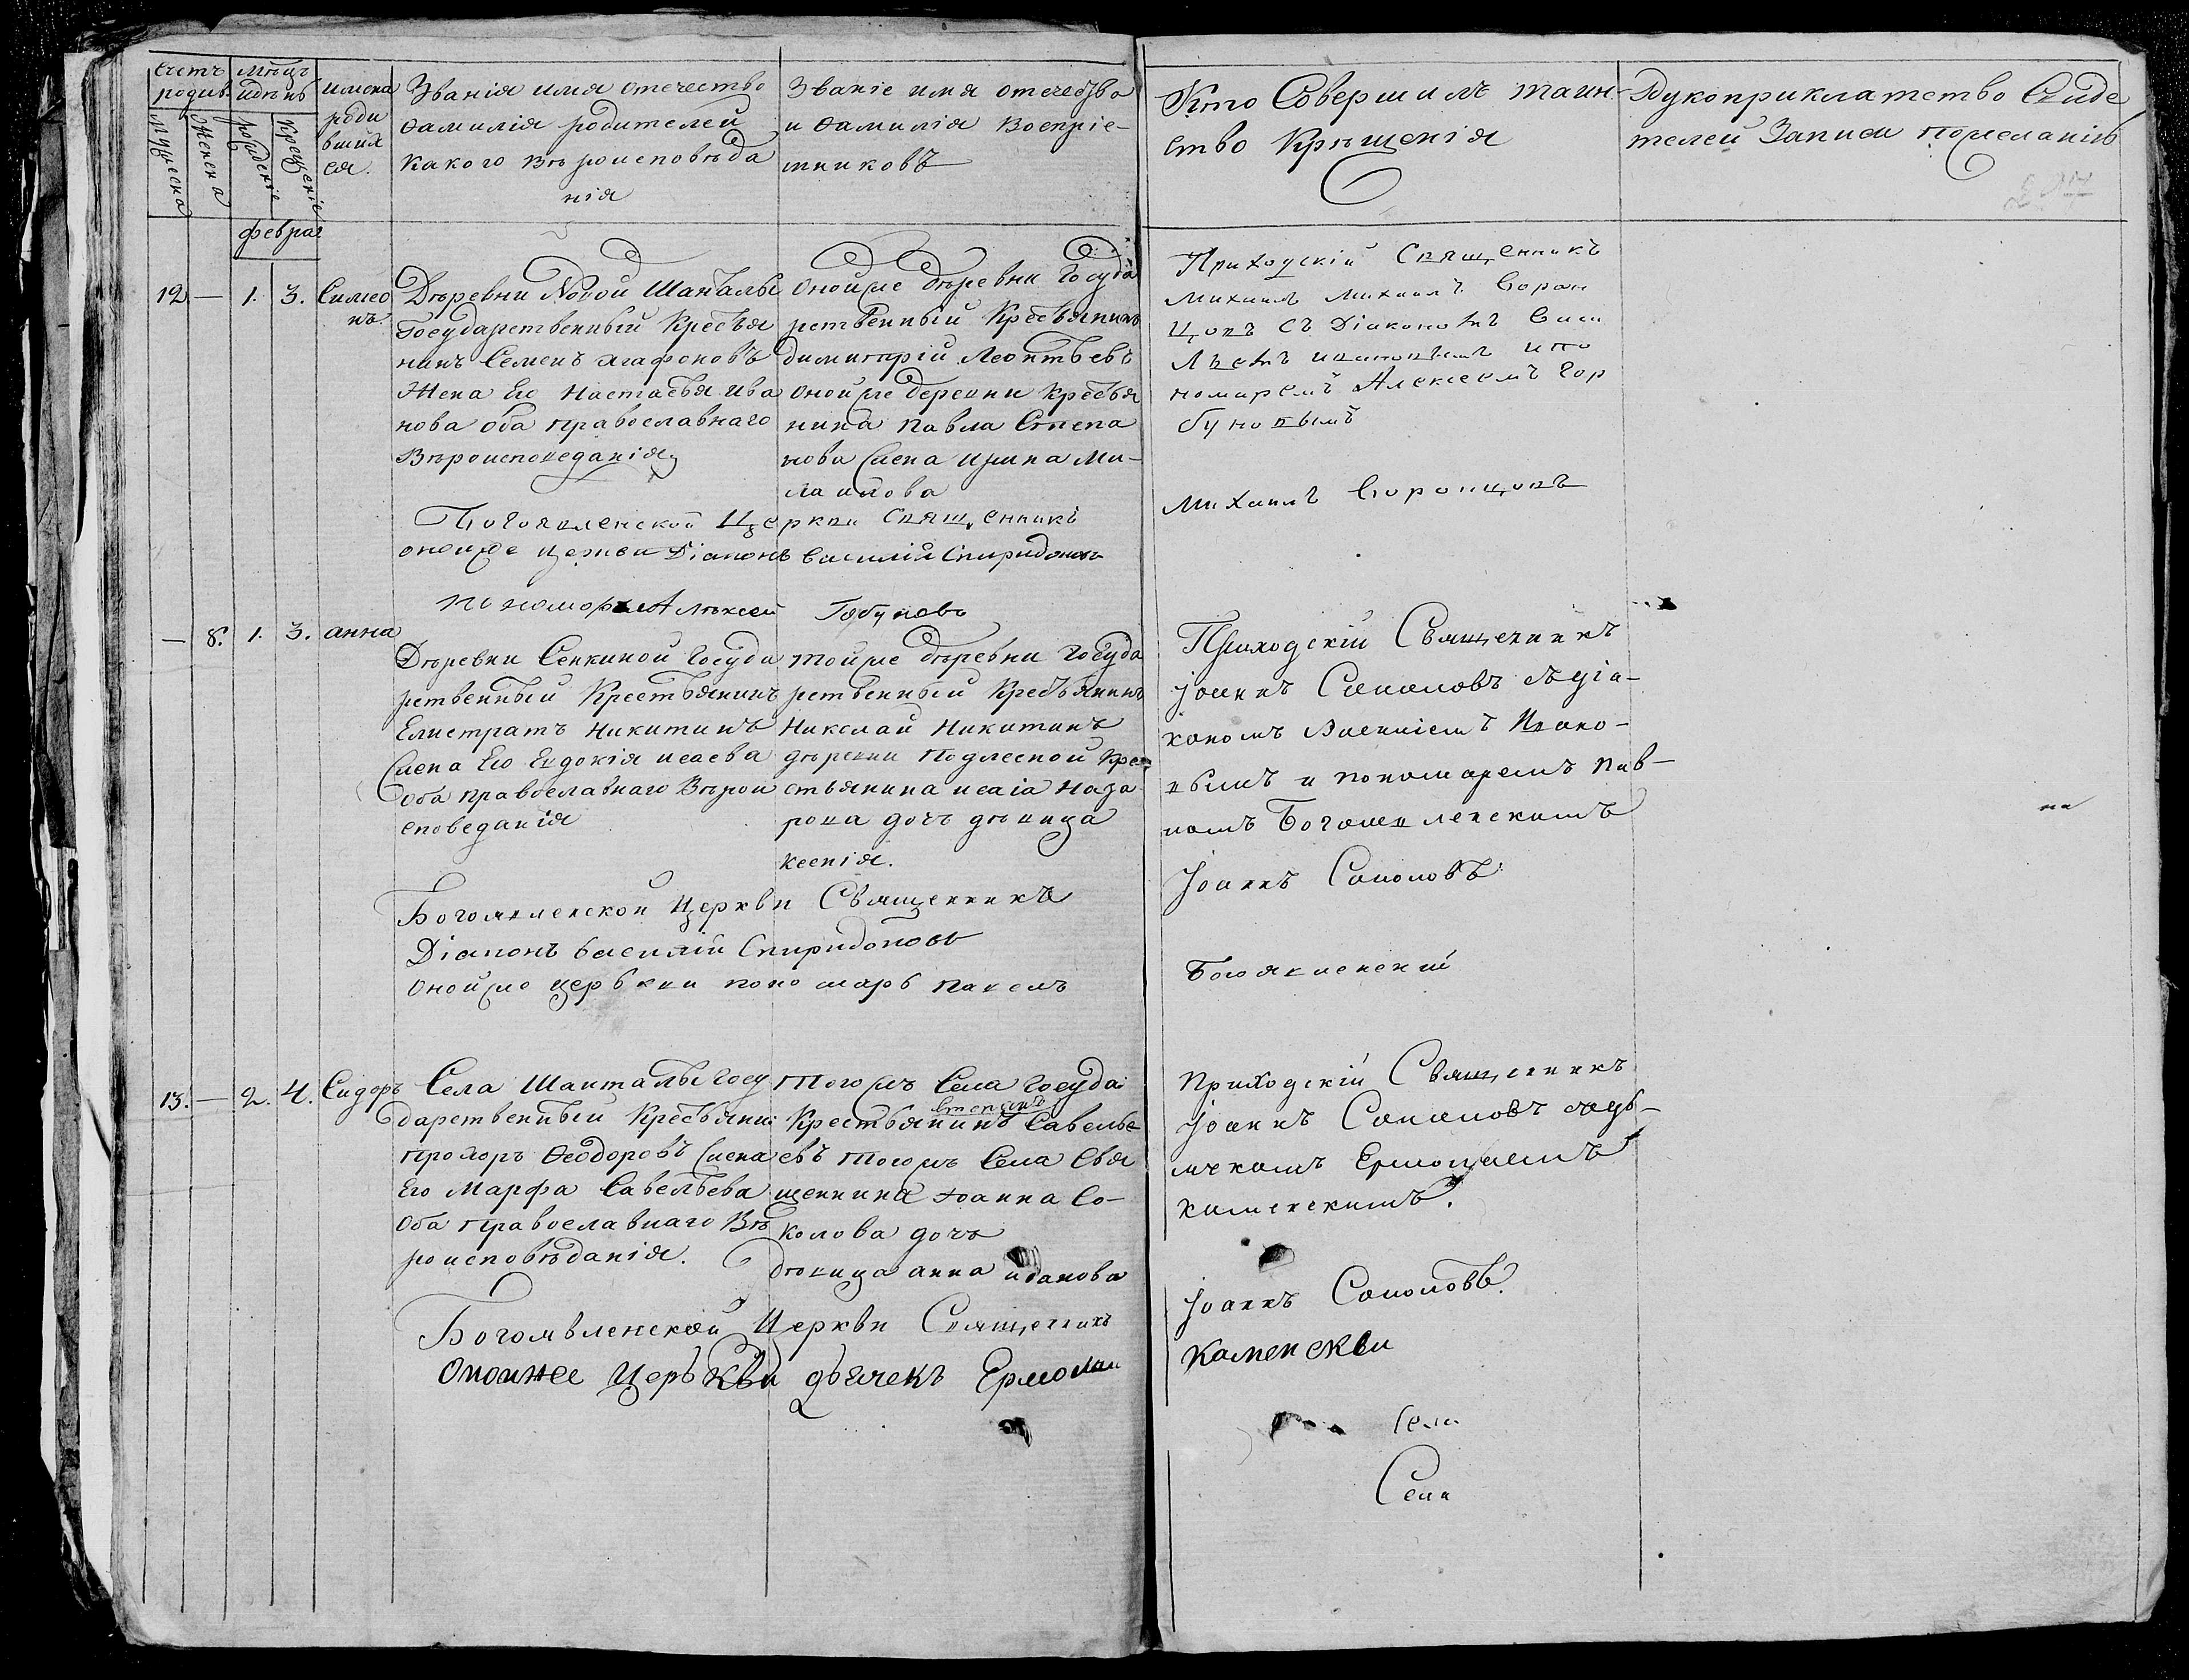 Счетъ родив.
Мужеска
Женска
Мѣцъ идѣнь
рожденіе
Крещеніе
имена
роди
вшихъ
ся.
Званія имя отечество
Фамилія родителей
Какого вѣроисповѣда
нія
Званіе имя отечество
и Фамилія Воспріе-
мниковъ
Кто Совершилъ таин-
ство Крѣщенія
Рукоприкладство Свиде
телей Записи пожеланію
февра
12 — 1. 3. Симео
нъ.
Дѣревни Новой Шанталы
Государственный Кресьтя
нинъ Семенъ Агафоновъ
Жена Его Настасья Ива
нова оба православнаго
Вѣроисповеданія
Онойже дѣревни Госуда
рственный Кресьянинъ
димитрій Леонтьевъ
Онойже деревни Кресья
нина Павла Степа
нова Жена Ирина Ми-
хаилова
Приходскій Священникъ
Михаилъ Михаилъ Ворон
цовъ съ Діакономъ Васи
номаремъ Алексеемъ Гор
буновымъ
Михаилъ Воронцовъ
Богоявленской Церкви Священникъ
онойже церкви Діаконъ Василій Спиридоновъ
пономорь Алѣксей Гобуновъ
— 8. 1. 3. анна
Дѣревни Сенкиной Госуда
рственный Крестьянинъ
Елистратъ Никитинъ
Жена Его Евдокія исаева
Оба православнаго Вѣрои
споведанія
тойже дѣревни Госуда
рственный Кресьянинъ
Николай Никитинъ
дѣревни Подлесной Кре
стьянина исаіа Наза
рова дочь дѣвица
ксенія.
Приходскій Священникъ
Іоаннъ Соколовъ съ діа-
кономъ Василіемъ Ивано-
вымъ и пономаремъ Пав-
ломъ Богоявленскимъ
Іоаннъ Соколовъ
Богоявленской Церкви Священникъ
Діаконъ Василій Спиридоновъ
Онойже церьвкви пономарь Павелъ
Богоявленскій
13. — 2. 4. Сидоръ
Села Шанталы Госу
дарственный Кресьяни
Прохоръ Ѳеодоровъ Жена
Его Марфа Савельева
Оба православнаго Вѣ
роисповѣданія.
Тогожъ Села Госуда
Степанъ
Крестьянинъ Савелье
евъ Тогожъ Села Свя
щенника Іоанна Со-
колова дочь
дѣвица анна иванова
Приходскій Священникъ
Іоаннъ Соколовъ съдь-
ячкомъ Ермолаемъ
каменскимъ.
Іоаннъ Соколовъ.
Богоявленской Церкви Священникъ
Оноижее Церьвкви дьячекъ Ермолаи
Каменскви
Села
Села